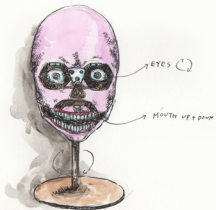 EYES
MOUTH UP + DOWN